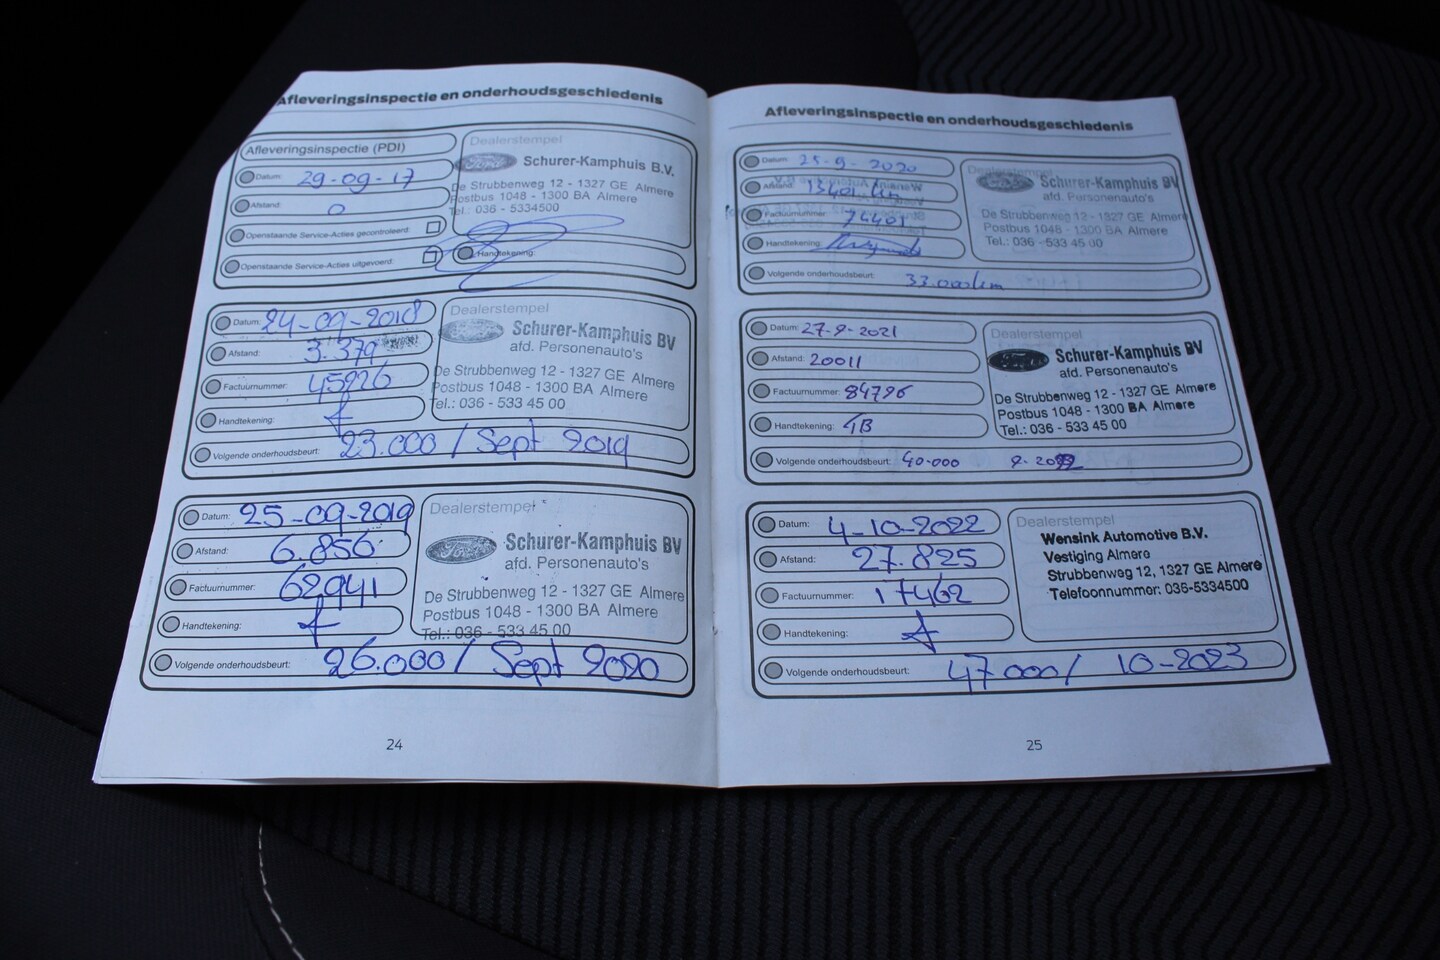 Afleveringsinspectie en onderhoudsgeschiedenis
Afleveringsinspectie (PDI)
Datum: 29-09-17
Afstand: 0
Openstaande Service-Acties gecontroleerd:
Openstaande Service-Acties uitgevoerd:
Dealerstempel
Ford
Schurer-Kamphuis B.V.
De Strubbenweg 12 - 1327 GE Almere
Postbus 1048 - 1300 BA Almere
Tel.: 036 - 5334500
Handtekening:
Datum: 24-09-2018
Afstand: 3.379
Factuurnummer: 45926
Handtekening:
Volgende onderhoudsbeurt: 23.000 / Sept 2019
Dealerstempel
Schurer-Kamphuis BV
afd. Personenauto's
De Strubbenweg 12 - 1327 GE Almere
Postbus 1048 - 1300 BA Almere
Tel.: 036 - 533 45 00
Datum: 25-09-2019
Afstand: 6.856
Factuurnummer: 62941
Handtekening:
Volgende onderhoudsbeurt: 26.000 / Sept 2020
Dealerstempel
Ford
Schurer-Kamphuis BV
afd. Personenauto's
De Strubbenweg 12 - 1327 GE Almere
Postbus 1048 - 1300 BA Almere
Tel.: 036 - 533 45 00
24
Afleveringsinspectie en onderhoudsgeschiedenis
Datum: 25-9-2020
Afstand: 13401 km
Factuurnummer: 74401
Handtekening:
Volgende onderhoudsbeurt: 33.000km
Dealerstempel
Schurer-Kamphuis BV
afd. Personenauto's
De Strubbenweg 12 - 1327 GE Almere
Postbus 1048 - 1300 BA Almere
Tel.: 036 - 533 45 00
Datum: 27-9-2021
Afstand: 20011
Factuurnummer: 84796
Handtekening:
Volgende onderhoudsbeurt: 40.000 9-2022
Dealerstempel
Schurer-Kamphuis BV
afd. Personenauto's
De Strubbenweg 12 - 1327 GE Almere
Postbus 1048 - 1300 BA Almere
Tel.: 036 - 533 45 00
Datum: 4-10-2022
Afstand: 27.825
Factuurnummer: 17462
Handtekening:
Volgende onderhoudsbeurt: 47.000 / 10-2023
Dealerstempel
Wensink Automotive B.V.
Vestiging Almere
Strubbenweg 12, 1327 GE Almere
Telefoonnummer: 036-5334500
25